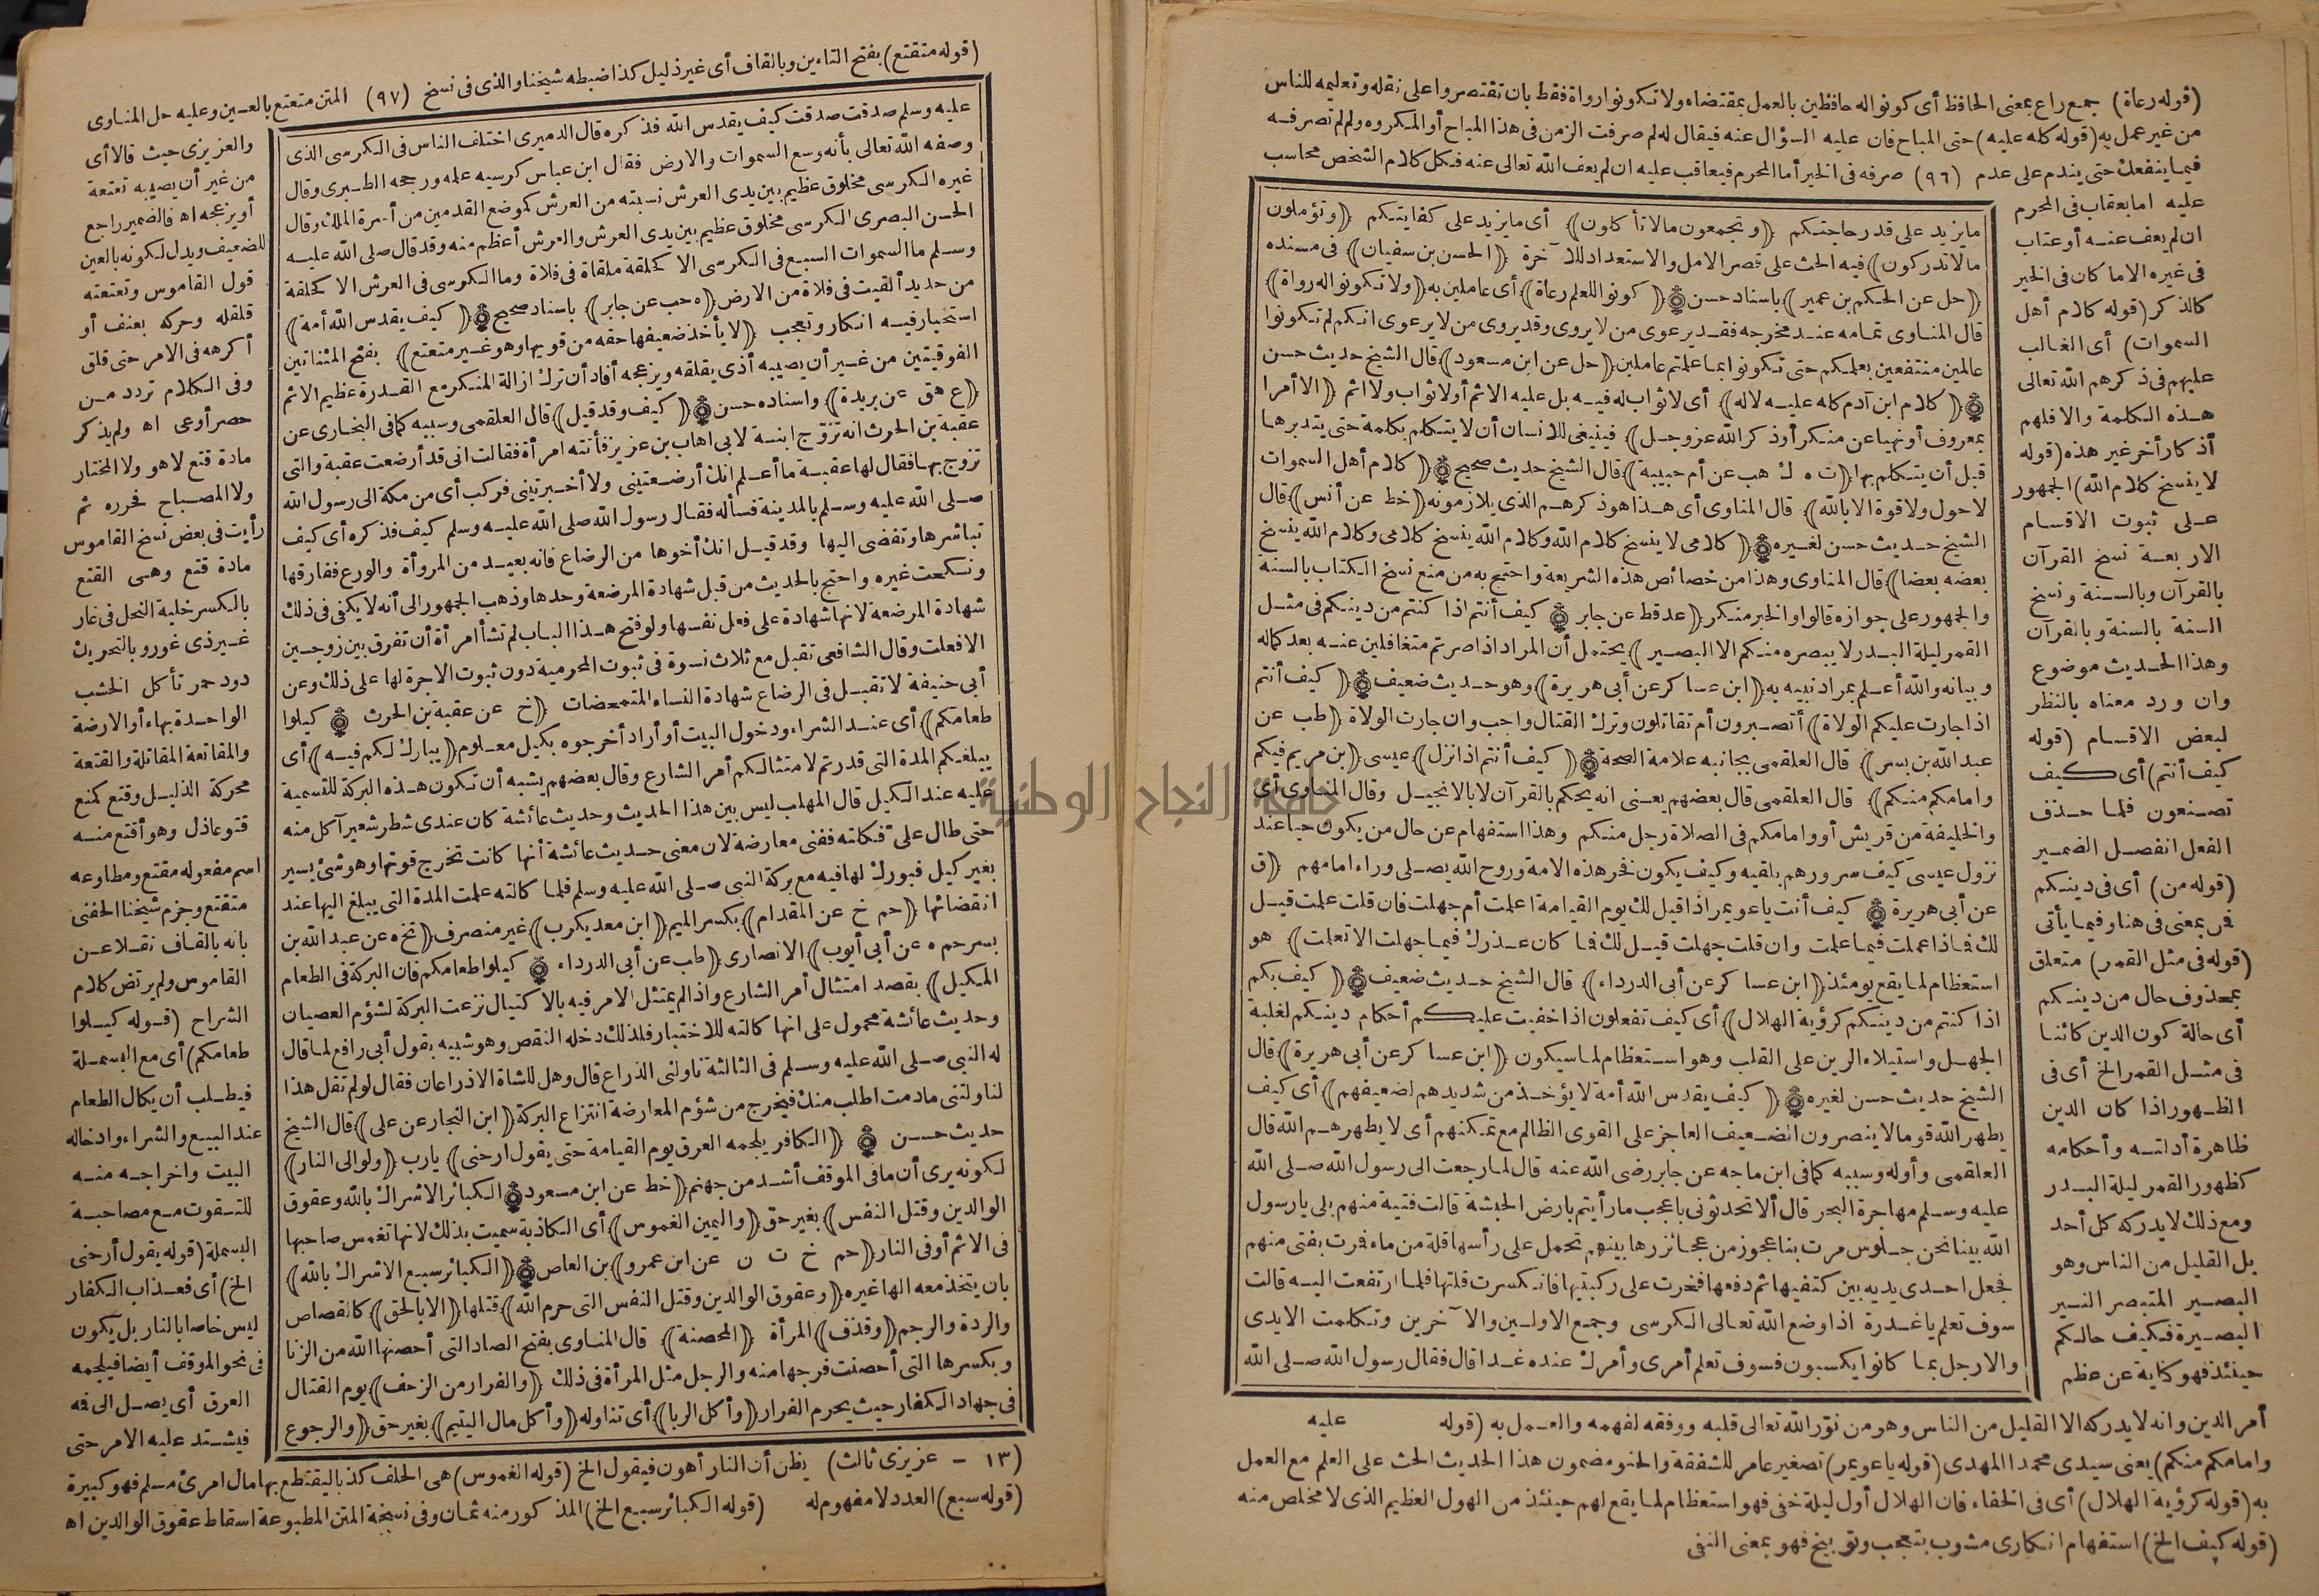 (قوله رعاة) جمع راع بمعنى الحافظ أى كونوا له حافظين بالعمل بمقتضاه ولا تكونوا رواة فقط بان تقتصروا على نقله وتعليمه للناس
من غير عمل به (قوله كله عليه) حتى المباح فان عليه السؤال عنه فيقال له لم صرفت الزمن فى هذا المباح أو المكروه ولم لم تصرفه
فيما ينفعك حتى يندم على عدم (٩٦) صرفه فى الخير أما المحرم فيعاقب عليه ان لم يعف الله تعالى عنه فكل كلام الشخص محاسب
عليه اما بعقاب فى المحرم
ان لم يعف عنه أو عتاب
فى غيره الا ما كان فى الخير
كالذكر (قوله كلام أهل
السموات) أى الغالب
عليهم فى ذكرهم الله تعالى
هذه الكلمة والا فلهم
أذكار أخر غير هذه (قوله
لا ينسخ كلام الله) الجمهور
على ثبوت الاقسام
الاربعة نسخ القرآن
بالقرآن وبالسنة ونسخ
السنة بالسنة وبالقرآن
وهذا الحديث موضوع
وان ورد معناه بالنظر
لبعض الاقسام (قوله
كيف أنتم) أى كيف
تصنعون فلما حذف
الفعل انفصل الضمير
(قوله من) أى فى دينكم
فمن بمعنى فى هنا وفيما يأتى
(قوله فى مثل القمر) متعلق
بمحذوف حال من دينكم
أى حالة كون الدين كائنا
فى مثل القمر الخ أى فى
الظهور اذا كان الدين
ظاهرة أدلته وأحكامه
كظهور القمر ليلة البدر
ومع ذلك لا يدركه كل أحد
بل القليل من الناس وهو
البصير المتبصر النير
البصيرة فكيف حالكم
حينئذ فهو كناية عن عظم
ما يزيد على قدر حاجتكم ﴿وتجمعون ما لا تأكلون﴾ أى ما يزيد على كفايتكم ﴿وتؤملون
ما لا تدركون﴾ فيه الحث على قصر الامل والاستعداد للآخرة ﴿الحسن بن سفيان﴾ فى مسنده
﴿حل عن الحكم بن عمير﴾ باسناد حسن ﴿كونوا للعلم رعاة﴾ أى عاملين به ﴿ولا تكونوا له رواة﴾
قال المناوى تمامه عند مخرجه فقد يرعوى من لا يروى وقد يروى من لا يرعوى انكم لم تكونوا
عالمين منتفعين بعلمكم حتى تكونوا بما علمتم عاملين ﴿حل عن ابن مسعود﴾ قال الشيخ حديث حسن
﴿كلام ابن آدم كله عليه لا له﴾ أى لا ثواب له فيه بل عليه الاثم أو لا ثواب ولا اثم ﴿الا أمرا
بمعروف أو نهيا عن منكر أو ذكر الله عز وجل﴾ فينبغى للانسان أن لا يتكلم بكلمة حتى يتدبرها
قبل أن يتكلم بها ﴿ت ه ك هب عن أم حبيبة﴾ قال الشيخ حديث صحيح ﴿كلام أهل السموات
لا حول ولا قوة الا بالله﴾ قال المناوى أى هذا هو ذكرهم الذى يلازمونه ﴿خط عن أنس﴾ قال
الشيخ حديث حسن لغيره ﴿كلامى لا ينسخ كلام الله وكلام الله ينسخ كلامى وكلام الله ينسخ
بعضه بعضا﴾ قال المناوى وهذا من خصائص هذه الشريعة واحتج به من منع نسخ الكتاب بالسنة
والجمهور على جوازه قالوا والخبر منكر ﴿عد قط عن جابر كيف أنتم اذا كنتم من دينكم فى مثل
القمر ليلة البدر لا يبصره منكم الا البصير﴾ يحتمل أن المراد اذا صرتم متغافلين عنه بعد كماله
وبيانه والله أعلم بمراد نبيه به ﴿ابن عساكر عن أبى هريرة﴾ وهو حديث ضعيف ﴿كيف أنتم
اذا جارت عليكم الولاة﴾ أتصبرون أم تقاتلون وترك القتال واجب وان جارت الولاة ﴿طب عن
عبد الله بن بسر﴾ قال العلقمى بجانبه علامة الصحة ﴿كيف أنتم اذا نزل﴾ عيسى ﴿بن مريم فيكم
وامامكم منكم﴾ قال العلقمى قال بعضهم يعنى انه يحكم بالقرآن لا بالانجيل وقال المناوى أى
والخليفة من قريش أو وامامكم فى الصلاة رجل منكم وهذا استفهام عن حال من يكون حيا عند
نزول عيسى كيف سرورهم بلقيه وكيف يكون فخر هذه الامة وروح الله يصلى وراء امامهم ﴿ق
عن أبى هريرة كيف أنت يا عويمر اذا قيل لك يوم القيامة اعلمت أم جهلت فان قلت علمت قيل
لك فماذا عملت فيما علمت وان قلت جهلت قيل لك فما كان عذرك فيما جهلت الا تعلمت﴾ هو
استعظام لما يقع يومئذ ﴿ابن عساكر عن أبى الدرداء﴾ قال الشيخ حديث ضعيف ﴿كيف بكم
اذا كنتم من دينكم كرؤية الهلال﴾ أى كيف تفعلون اذا خفيت عليكم أحكام دينكم لغلبة
الجهل واستيلاء الرين على القلب وهو استعظام لما سيكون ﴿ابن عساكر عن أبى هريرة﴾ قال
الشيخ حديث حسن لغيره ﴿كيف يقدس الله أمة لا يؤخذ من شديدهم لضعيفهم﴾ أى كيف
يطهر الله قوما لا ينصرون الضعيف العاجز على القوى الظالم مع تمكنهم أى لا يطهرهم الله قال
العلقمى وأوله وسببه كما فى ابن ماجه عن جابر رضى الله عنه قال لما رجعت الى رسول الله صلى الله
عليه وسلم مهاجرة البحر قال ألا تحدثونى باعجب ما رأيتم بارض الحبشة قالت فتية منهم بلى يا رسول
الله بينا نحن جلوس مرت بنا عجوز من عجائزرها بينهم تحمل على رأسها قلة من ماء فمرت بفتى منهم
فجعل احدى يديه بين كتفيها ثم دفعها فخرت على ركبتيها فانكسرت قلتها فلما ارتفعت اليه قالت
سوف تعلم يا غدرة اذا وضع الله تعالى الكرسى وجمع الاولين والآخرين وتكلمت الايدى
والارجل بما كانوا يكسبون فسوف تعلم أمرى وأمرك عنده غدا قال فقال رسول الله صلى الله
أمر الدين وانه لا يدركه الا القليل من الناس وهو من نوّر الله تعالى قلبه ووفقه لفهمه والعمل به (قوله عليه
وامامكم منكم) يعنى سيدى محمدا المهدى (قوله يا عويمر) تصغير عامر للشفقة والحنو ومضمون هذا الحديث الحث على العلم مع العمل
به (قوله كرؤية الهلال) أى فى الخفاء فان الهلال أول ليلة خفى فهو استعظام لما يقع لهم حينئذ من الهول العظيم الذى لا مخلص منه
(قوله كيف الخ) استفهام انكارى مشوب بتعجب وتوبيخ فهو بمعنى النفى
(قوله متقتع) بفتح التاءين وبالقاف أى غير ذليل كذا ضبطه شيخنا والذى فى نسخ (٩٧) المتن متعتع بالعين وعليه حل المناوى
والعزيزى حيث قالا أى
من غير أن يصيبه تعتعة
أو يزعجه اه فالضمير راجع
للضعيف ويدل لكونه بالعين
قول القاموس وتعتعته
قلقله وحركه بعنف أو
أكرهه فى الامر حتى قلق
وفى الكلام تردد من
حصر أو عى اه ولم يذكر
مادة قتع لا هو ولا المختار
ولا المصباح فحرره ثم
رأيت فى بعض نسخ القاموس
مادة قتع وهى القتع
بالكسر خلية النحل فى غار
غير ذى غور وبالتحريك
دود حمر تأكل الخشب
الواحدة بهاء أو الارضة
والمقاتعة المقاتلة والقتعة
محركة الذليل وقتع كمنع
قتوعا ذل وهو أقتع منه
اسم مفعوله مقتع ومطاوعه
متقتع وجزم شيخنا الحفنى
بانه بالقاف نقلا عن
القاموس ولم يرتض كلام
الشراح (قوله كيلوا
طعامكم) أى مع البسملة
فيطلب أن يكال الطعام
عند البيع والشراء وادخاله
البيت واخراجه منه
للتقوت مع مصاحبة
البسملة (قوله يقول أرحنى
الخ) أى فعذاب الكفار
ليس خاصا بالنار بل يكون
فى نحو الموقف أيضا فيلجمه
العرق أى يصل الى فه
فيشتد عليه الامر حتى
عليه وسلم صدقت صدقت كيف يقدس الله فذكره قال الدميرى اختلف الناس فى الكرسى الذى
وصفه الله تعالى بأنه وسع السموات والارض فقال ابن عباس كرسيه علمه ورجحه الطبرى وقال
غيره الكرسى مخلوق عظيم بين يدى العرش نسبته من العرش كموضع القدمين من أسرة الملك وقال
الحسن البصرى الكرسى مخلوق عظيم بين يدى العرش والعرش أعظم منه وقد قال صلى الله عليه
وسلم ما السموات السبع فى الكرسى الا كحلقة ملقاة فى فلاة وما الكرسى فى العرش الا كحلقة
من حديد ألقيت فى فلاة من الارض ﴿ه حب عن جابر﴾ باسناد صحيح ﴿كيف يقدس الله أمة﴾
استخبار فيه انكار وتعجب ﴿لا يأخذ ضعيفها حقه من قويها وهو غير متعتع﴾ بفتح المثناتين
الفوقيتين من غير أن يصيبه أذى يقلقه ويزعجه أفاد أن ترك ازالة المنكر مع القدرة عظيم الاثم
﴿ع هق عن بريدة﴾ واسناده حسن ﴿كيف وقد قيل﴾ قال العلقمى وسببه كما فى البخارى عن
عقبة بن الحرث انه تزوّج ابنة لابى اهاب بن عزيز فأتته امرأة فقالت انى قد أرضعت عقبة والتى
تزوج بها فقال لها عقبة ما أعلم انك أرضعتينى ولا أخبرتينى فركب أى من مكة الى رسول الله
صلى الله عليه وسلم بالمدينة فسأله فقال رسول الله صلى الله عليه وسلم كيف فذكره أى كيف
تباشرها وتفضى اليها وقد قيل انك أخوها من الرضاع فانه بعيد من المروأة والورع ففارقها
ونكحت غيره واحتج بالحديث من قبل شهادة المرضعة وحدها وذهب الجمهور الى أنه لا يكفى فى ذلك
شهادة المرضعة لانها شهادة على فعل نفسها ولو فتح هذا الباب لم تشأ امرأة أن تفرق بين زوجين
الا فعلت وقال الشافعى تقبل مع ثلاث نسوة فى ثبوت المحرمية دون ثبوت الاجرة لها على ذلك وعن
أبى حنيفة لا تقبل فى الرضاع شهادة النساء المتمحضات ﴿خ عن عقبة بن الحرث كيلوا
طعامكم﴾ أى عند الشراء ودخول البيت أو أراد أخرجوه بكيل معلوم ﴿يبارك لكم فيه﴾ أى
يبلغكم المدة التى قدرتم لامتثالكم أمر الشارع وقال بعضهم يشبه أن تكون هذه البركة للتسمية
عليه عند الكيل قال المهلب ليس بين هذا الحديث وحديث عائشة كان عندى شطر شعير آكل منه
حتى طال علىّ فكلته ففنى معارضة لان معنى حديث عائشة أنها كانت تخرج قوتها وهو شئ يسير
بغير كيل فبورك لها فيه مع بركة النبى صلى الله عليه وسلم فلما كالته علمت المدة التى يبلغ اليها عند
انقضائها ﴿حم خ عن المقدام﴾ بكسر الميم ﴿ابن معديكرب﴾ غير منصرف ﴿تخ ه عن عبد الله بن
بسر حم ه عن أبى أيوب﴾ الانصارى ﴿طب عن أبى الدرداء كيلوا طعامكم فان البركة فى الطعام
المكيل﴾ بقصد امتثال أمر الشارع واذا لم يمتثل الامر فيه بالاكتيال نزعت البركة لشؤم العصيان
وحديث عائشة محمول على انها كالته للاختبار فلذلك دخله النقص وهو شبيه بقول أبى رافع لما قال
له النبى صلى الله عليه وسلم فى الثالثة ناولنى الذراع قال وهل للشاة الا ذراعان فقال لو لم تقل هذا
لناولتنى ما دمت اطلب منك فيخرج من شؤم المعارضة انتزاع البركة ﴿ابن النجار عن على﴾ قال الشيخ
حديث حسن ﴿الكافر يلجمه العرق يوم القيامة حتى يقول ارحنى﴾ يارب ﴿ولو الى النار﴾
لكونه يرى أن ما فى الموقف أشد من جهنم ﴿خط عن ابن مسعود الكبائر الاشراك بالله وعقوق
الوالدين وقتل النفس﴾ بغير حق ﴿واليمين الغموس﴾ أى الكاذبة سميت بذلك لانها تغمس صاحبها
فى الاثم أو فى النار ﴿حم خ ت ن عن ابن عمرو﴾ بن العاص ﴿الكبائر سبع الاشراك بالله﴾
بان يتخذ معه الها غيره ﴿وعقوق الوالدين وقتل النفس التى حرم الله﴾ قتلها ﴿الا بالحق﴾ كالقصاص
والردة والرجم ﴿وقذف﴾ المرأة ﴿المحصنة﴾ قال المناوى بفتح الصاد التى أحصنها الله من الزنا
وبكسرها التى أحصنت فرجها منه والرجل مثل المرأة فى ذلك ﴿والفرار من الزحف﴾ يوم القتال
فى جهاد الكفار حيث يحرم الفرار ﴿وأكل الربا﴾ أى تناوله ﴿وأكل مال اليتيم﴾ بغير حق ﴿والرجوع
(١٣ – عزيزى ثالث) يظن أن النار أهون فيقول الخ (قوله الغموس) هى الحلف كذبا ليقتطع بها مال امرئ مسلم فهو كبيرة
(قوله سبع) العدد لا مفهوم له (قوله الكبائر سبع الخ) المذكور منه ثمان وفى نسخة المتن المطبوعة اسقاط عقوق الوالدين اه
جامعة النجاح الوطنية